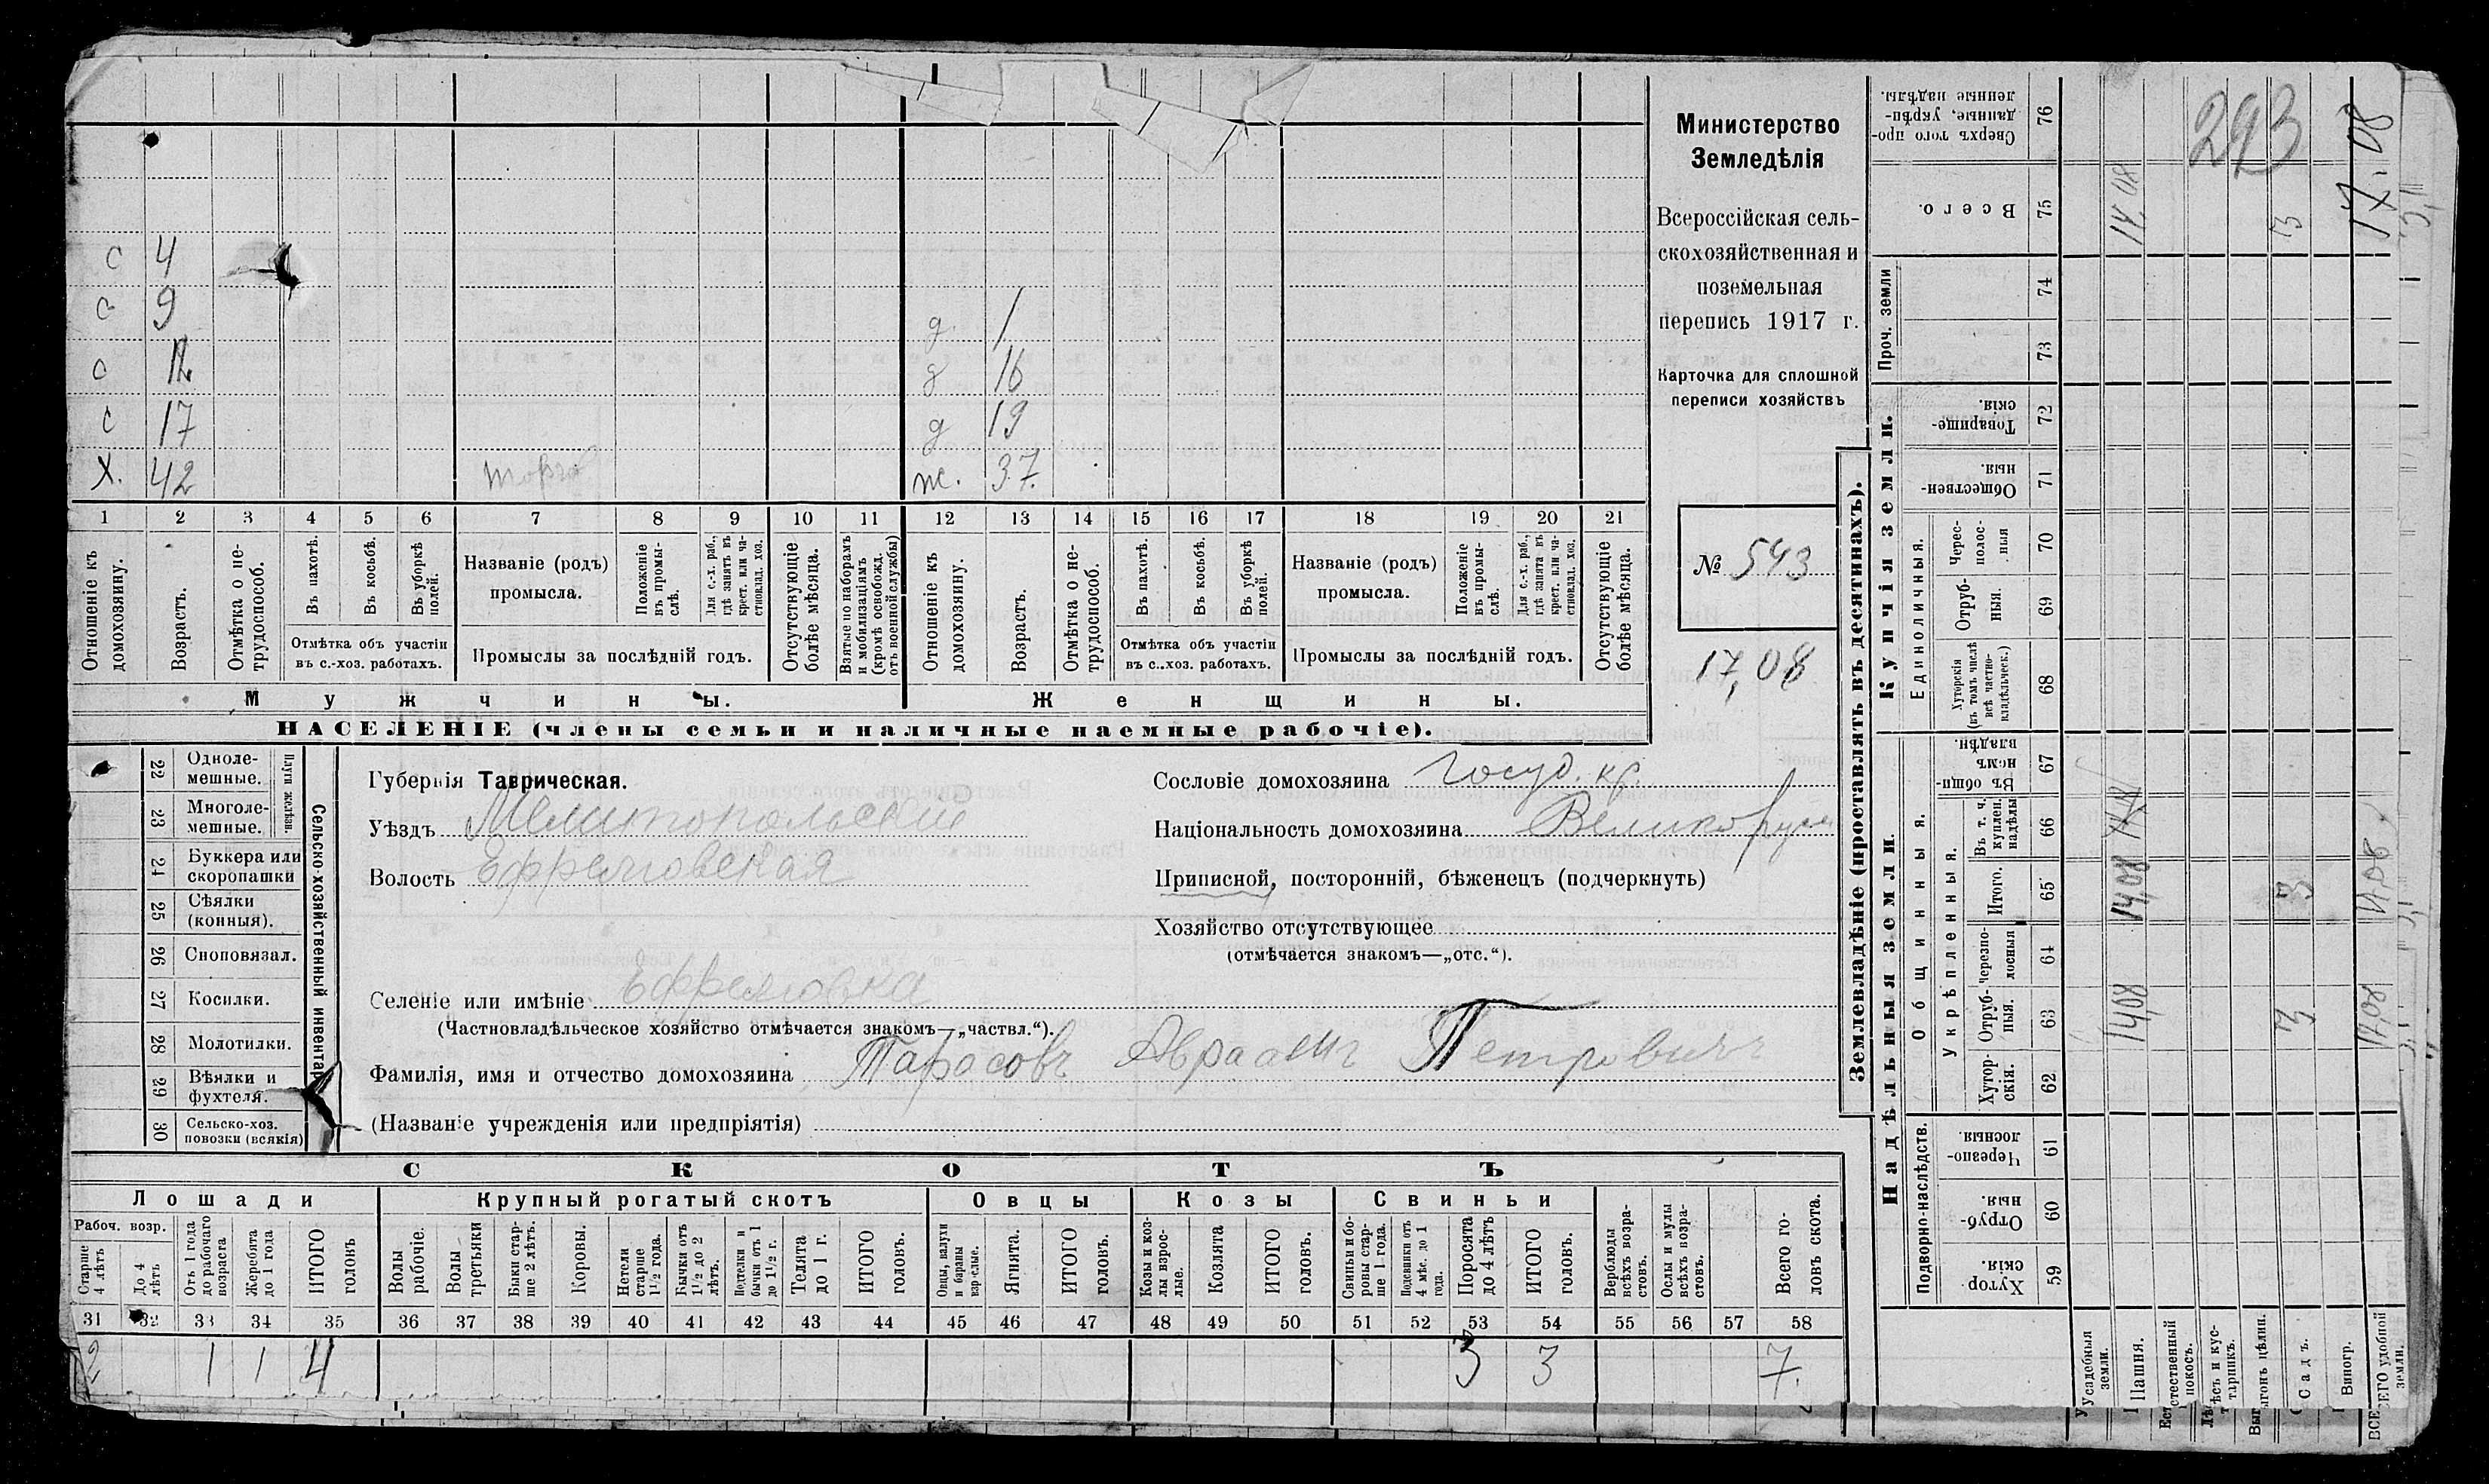 Министерство
Земледѣлія
Всероссійская сель-
скохозяйственная и
поземельная
перепись 1917 г.
Карточка для сплошной
переписи хозяйствъ
№ 543
17,08
293
17.08
с 4
с 9
с 12
с 17
Х. 42 торгов
д. 1
д 16
д 19
ж. 37.
1 2 3 4 5 6 7 8 9 10 11 12 13 14 15 16 17 18 19 20 21
Отношеніе къ домохозяину.
Возрастъ.
Отмѣтка о не-трудоспособ.
Въ пахотѣ.
Въ косьбѣ.
Въ уборкѣ полей.
Отмѣтка объ участіи
въ с.-хоз. работахъ.
Названіе (родъ)
промысла.
Положеніе въ промы-слѣ.
Для с.-х. раб., гдѣ занятъ въ крест. или ча-стновлад. хоз.
Промыслы за послѣдній годъ.
Отсутствующіе болѣе мѣсяца.
Взятые по наборамъ и мобилизаціямъ (кромѣ освобожд. отъ военной службы)
Отношеніе къ домохозяину.
Возрастъ.
Отмѣтка о не-трудоспособ.
Въ пахотѣ.
Въ косьбѣ.
Въ уборкѣ полей.
Отмѣтка объ участіи
въ с..хоз. работахъ.
Названіе (родъ)
промысла.
Положеніе въ промы-слѣ.
Для с.-х. раб., гдѣ занята въ крест. или ча-стновлад. хоз.
Промыслы за послѣдній годъ.
Отсутствующіе болѣе мѣсяца.
Мужчины.
Женщины.
НАСЕЛЕНІЕ (члены семьи и наличные наемные рабочіе).
22 Одноле-мешные.
23 Многоле-мешные.
Плуги желѣзн.
24 Буккера или скоропашки
25 Сѣялки (конныя).
26 Сноповязал.
27 Косилки.
28 Молотилки.
29 Вѣялки и фухтеля.
30 Сельско-хоз. повозки (всякія)
Сельско-хозяйственный инвентар
Губернія Таврическая.
Уѣздъ Мелитопольскій
Волость Ефремовская
Селеніе или имѣніе Ефремовка
(Частновладѣльческое хозяйство отмѣчается знакомъ—„частвл.“).
Фамилія, имя и отчество домохозяина Тарасовъ Авраамъ Петровичъ
(Названіе учрежденія или предпріятія)
Сословіе домохозяина госуд. кр.
Національность домохозяина Великорус
Приписной, посторонній, бѣженецъ (подчеркнуть)
Хозяйство отсутствующее
(отмѣчается знакомъ—„отс.“).
СКОТЪ
Лошади
Крупный рогатый скотъ
Овцы
Козы
Свиньи
Рабоч. возр.
Старше 4 лѣтъ
До 4 лѣтъ
Отъ 1 года до рабочаго возраста
Жеребята до 1 года
ИТОГО головъ
Волы рабочіе.
Волы третьяки
Быки стар-ше 2 лѣтъ.
Коровы.
Нетели старше 1½ года.
Бычки отъ 1½ до 2 лѣтъ.
Подтелки и бычки отъ 1 до 1½ г.
Телята до 1 г.
ИТОГО головъ.
Овцы, валухи и бараны взрослые.
Ягнята.
ИТОГО головъ.
Козы и коз-лы взрос-лые.
Козлята
ИТОГО головъ.
Свиньи и бо-ровы стар-ше 1 года.
Подсвинки отъ 4 мѣс. до 1 года.
Поросята до 4 лѣтъ
ИТОГО головъ.
Верблюды всѣхъ возра-стовъ.
Ослы и мулы всѣхъ возра-стовъ.
Всего го-ловъ скота.
31 32 33 34 35 36 37 38 39 40 41 42 43 44 45 46 47 48 49 50 51 52 53 54 55 56 57 58
2 1 1 4 3 3 7.
Землевладѣніе (проставлять въ десятинахъ).
Купчія земли.
Надѣльныя земли.
76 Сверхъ того про-данные, укрѣп-ленные надѣлы.
75 Всего.
Проч. земли
74
73
72 Товарище-скія.
71 Обществен-ныя
Единоличныя.
70 Черес-полос-ныя
69 Отруб-ныя.
68 Хуторскія (въ томъ числѣ всѣ частно-владѣльческ.)
Общинныя.
67 Въ общи-номъ владѣн.
Укрѣпленныя.
66 Въ т. ч. куплен. надѣлы
65 Итого.
64 Черезпо-лосныя
63 Отруб-ныя.
62 Хутор-скія.
Подворно-наслѣдств.
61 Черезпо-лосныя.
60 Отруб-ныя.
59 Хутор-скія.
Усадебныя земли.
Пашня. 14,08 14,08 14,08
Естественный покосъ.
Лѣсъ и кус-тарникъ.
Выгонъ цѣлин.
Садъ. 3 3 3
Виногр.
ВСЕГО удобной земли. 17,08 17,08